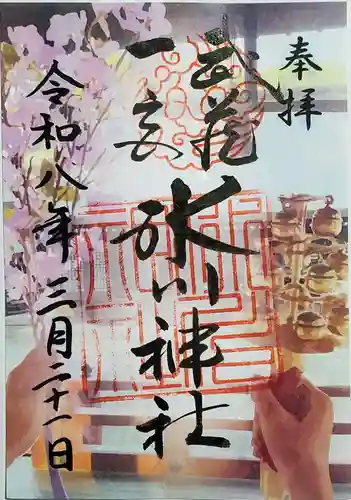 奉拝
武蔵
一宮
氷川神社
令和八年三月二十一日